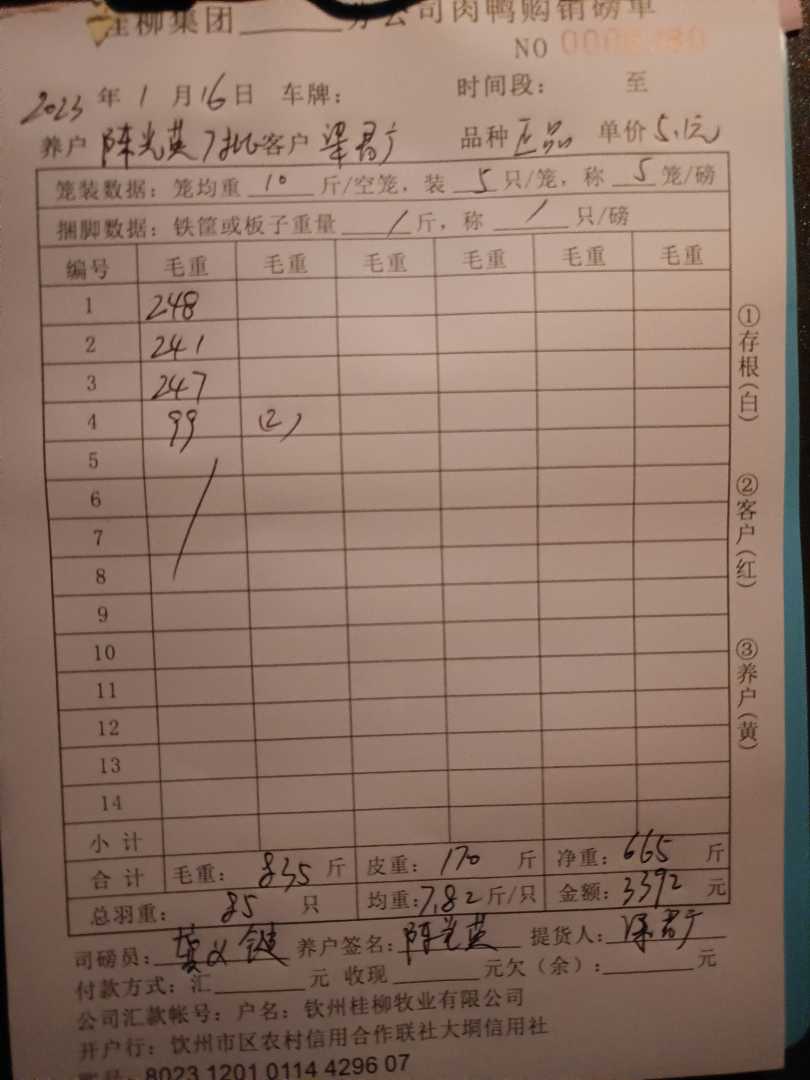 桂柳集团______分公司肉鸭购销磅单
NO
2023 年 1 月 16 日 车牌： 时间段： 至
养户 陈光英 7批 客户 梁君广 品种 正品 单价 5.1元
笼装数据：笼均重 10 斤/空笼，装 5 只/笼，称 5 笼/磅
捆脚数据：铁筐或板子重量 / 斤，称 / 只/磅
编号 毛重 毛重 毛重 毛重 毛重 毛重
1 248
2 241
3 247
4 99 (2)
5
6
7
8
9
10
11
12
13
14
小 计
合 计 毛重： 835 斤 皮重： 170 斤 净重： 665 斤
总羽重： 85 只 均重: 7.82 斤/只 金额: 3392 元
司磅员: 养户签名: 陈光英 提货人: 梁君广
付款方式：汇______元 收现______元欠（余）：______元
公司汇款帐号：户名：钦州桂柳牧业有限公司
开户行：钦州市区农村信用合作联社大垌信用社
8023 1201 0114 4296 07
①存根(白)
②客户(红)
③养户(黄)